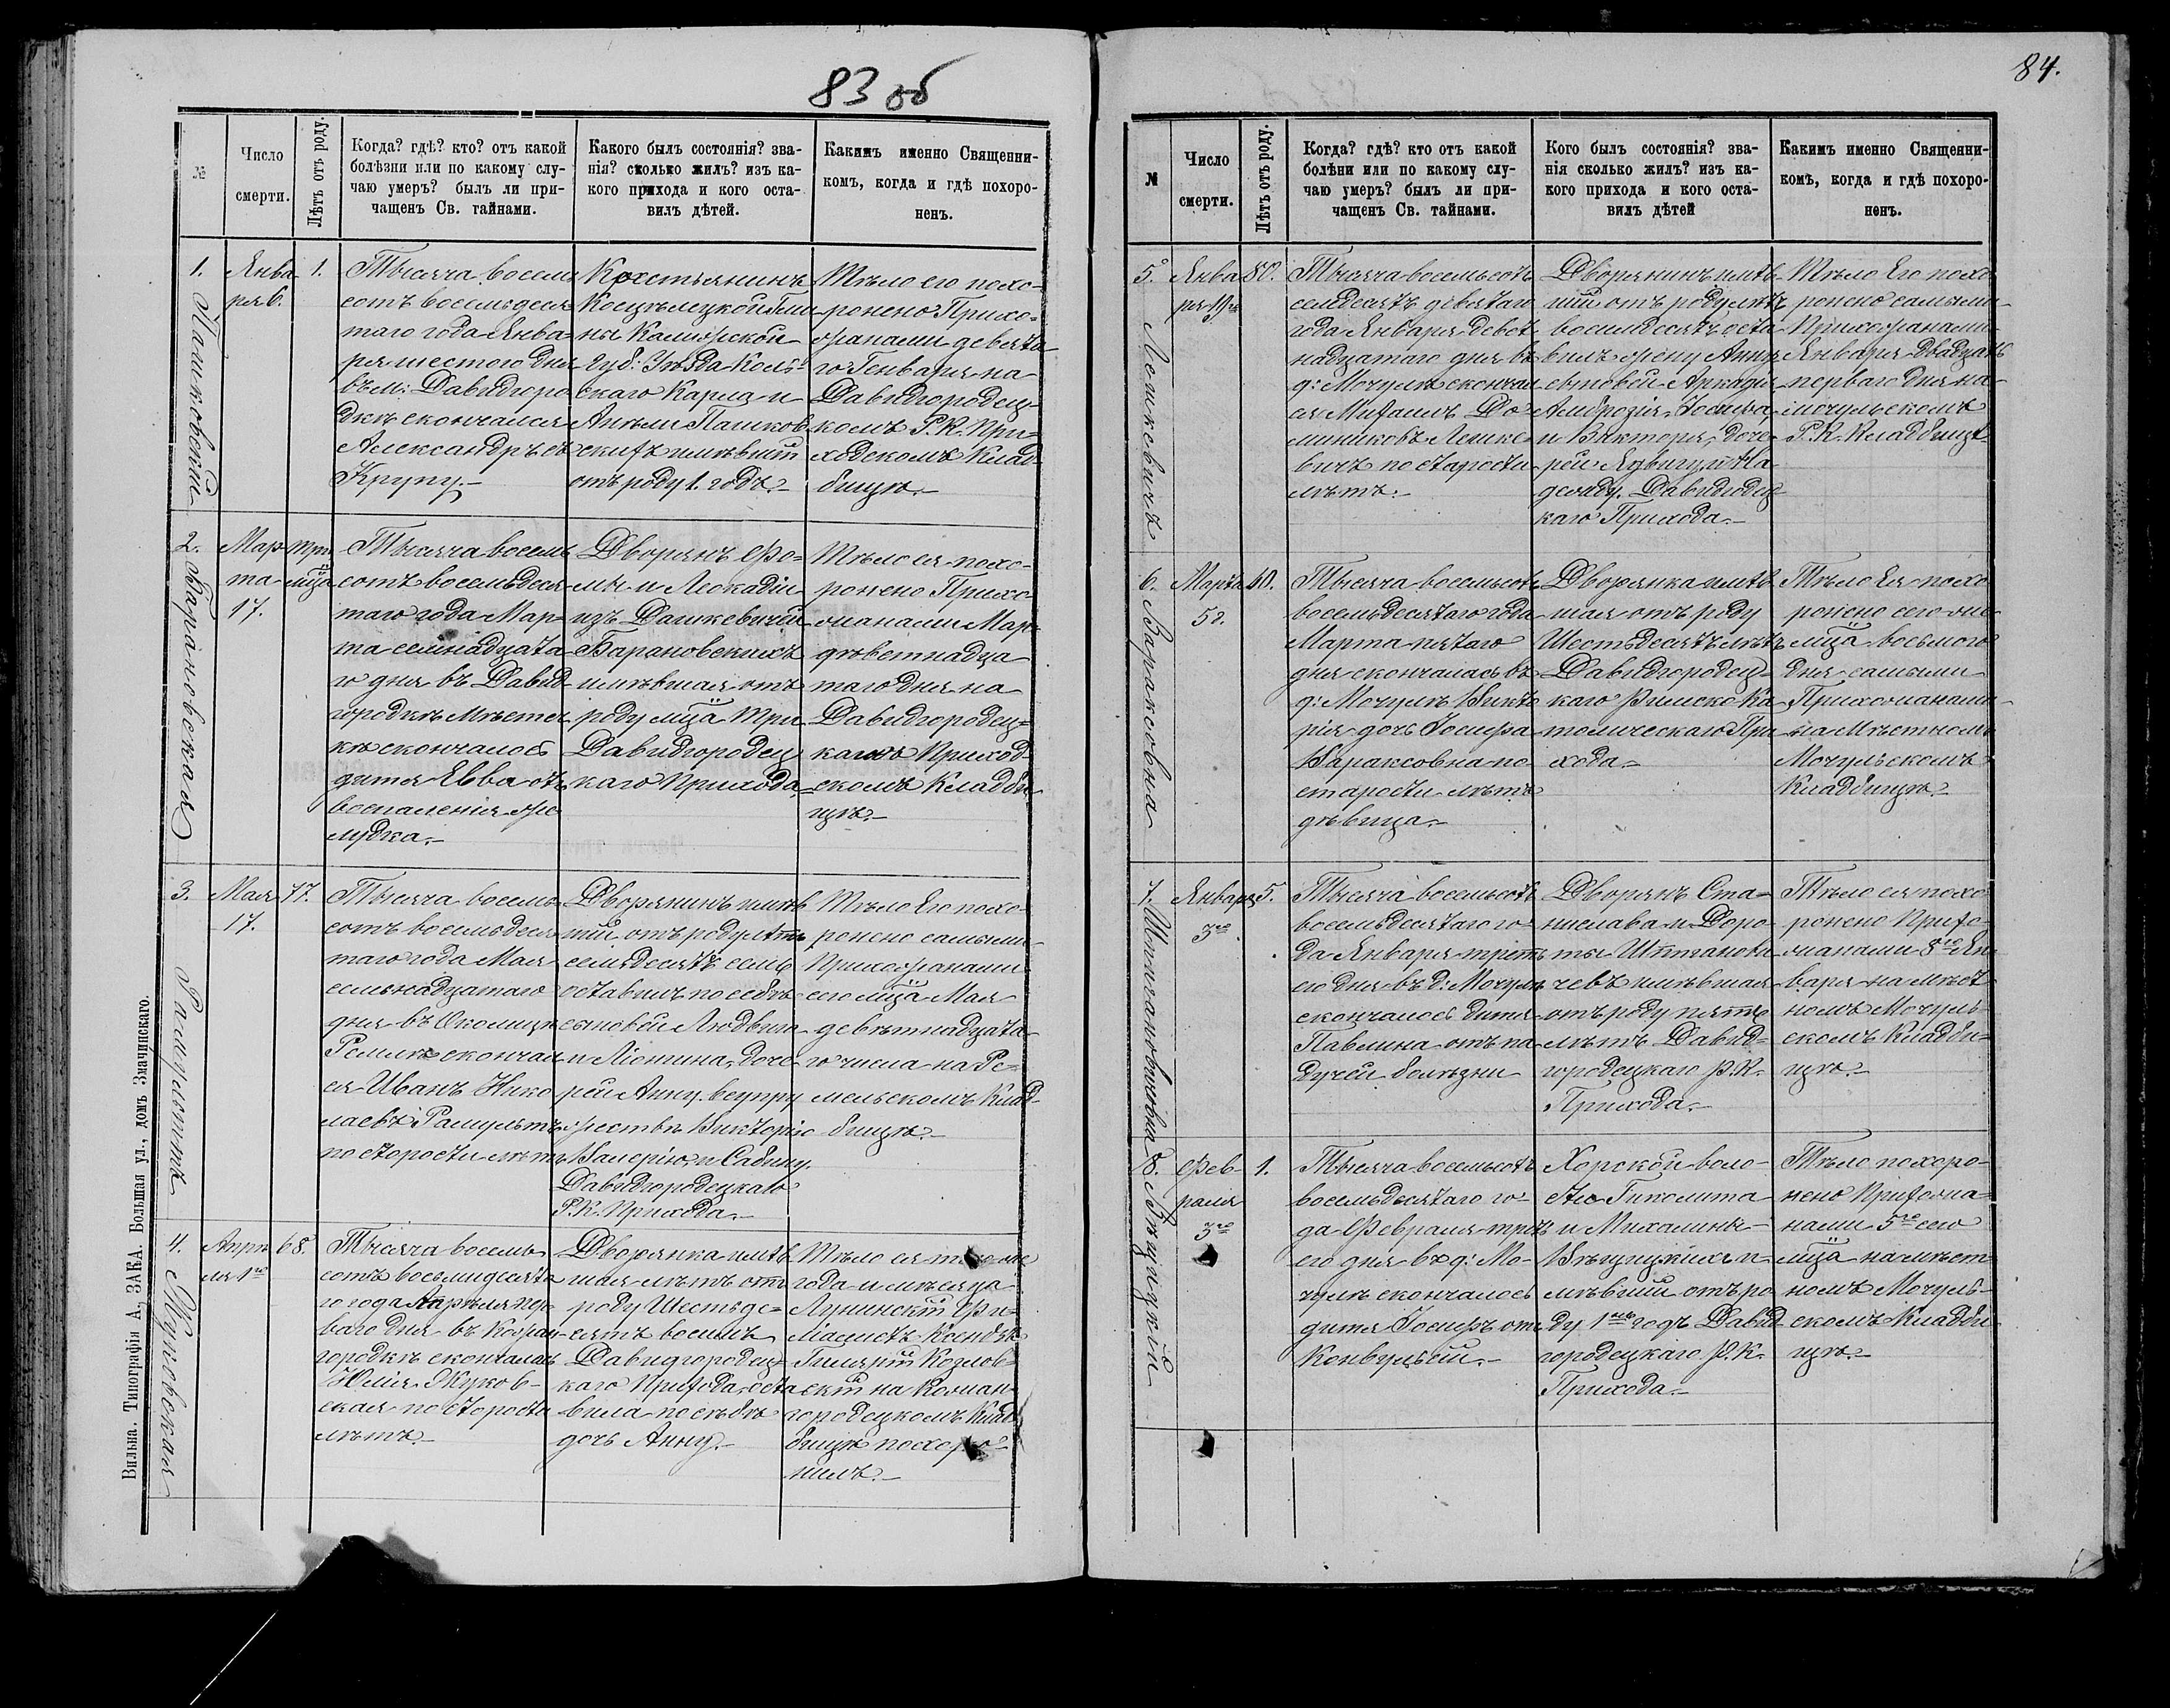 83 об
№
Число
смерти.
Лѣтъ отъ роду.
Когда? гдѣ? кто? отъ какой
болѣзни или по какому слу-
чаю умеръ? былъ ли при-
чащенъ Св. тайнами.
Какого былъ состоянія? зва-
нія? сколько жилъ? изъ ка-
кого прихода и кого оста-
вилъ дѣтей.
Какимъ именно Священни-
комъ, когда и гдѣ похоро-
ненъ.
1.
Пашковскій
Янва
ря 6.
1.
Тысяча восемь
сотъ восемьдеся
таго года Янва-
ря шестого дня
въ м: Давидгоро
дкѣ скончался
Александръ отъ
Крупу.-
Крестьянинъ
Коцѣлецкой Гми
ны Калишской
Губ: Уѣзда Коль-
скаго Карла и
Анѣли Пашков
скихъ имѣвшій
отъ роду 1. годъ.-
Тѣло его похо-
ронено Прихо-
жанами девята
го Генваря на
Давидгородец-
комъ Р.К. При-
ходскомъ Клад-
бищѣ.-
2.
Барановская
Мар-
та
17.
три
мца
Тысяча восемь
сотъ восемьдеся
таго года Мар-
та семнадцата
го дня въ Давид-
городкѣ Мѣстеч
кѣ скончалось
дитя Евва отъ
воспаленія же
лудка.-
Дворянъ Фо-
мы и Леокадіи
изъ Дашкевичей
Барановскихъ
имѣвшая отъ
роду мца три
Давидгородец
каго Прихода.-
Тѣло ея похо-
ронено Прихо-
жанами Мар-
та девятнадца
таго дня на
Давидгородец-
комъ Приход-
скомъ Кладби
щѣ.-
3.
Рамультъ
Мая
17.
77.
Тысяча восемь
сотъ восемьдеся
таго года Мая
семьнадцатаго
дня въ Околицѣ
Ремль скончал
ся Иванъ Нико
лаевъ Рамультъ
по старости лѣтъ
Дворянинъ имѣв
шій отъ роду лѣтъ
семьдесятъ семь
оставилъ по себѣ
сыновей Людвига
и Люціина, доче
рей Анну, въ супру
жествѣ Викторію
Валерію, и Сабину.
Давидгородецкаго
Р.К. Прихода.-
Тѣло Его похо-
ронено самыми
Прихожанами
сего мца Мая
девятнадцата
го числа на Ре-
мельскомъ Клад-
бищѣ.-
4.
Жуковская
Апрѣ
ля 1го
68.
Тысяча восемь
сотъ восьмидесята
го года Апрѣля пер
ваго дня въ Кожан
городкѣ скончалась
Юлія Жуков-
ская по старости
лѣтъ.-
Дворянка имѣв
шая лѣтъ отъ
роду Шестьде-
сятъ восемь
Давидгородец-
каго Прихода, оста
вила по себѣ
дочь Анну.-
Тѣло ея того же
года и мѣсяца
Лунинскій Фи-
ліалистъ Ксендзъ
Гилярій Козлов-
скій на Кожан-
городецкомъ Клад
бищѣ похоро-
нилъ.-
Вильна. Типографія А. ЗАКА. Большая ул., домъ Значинскаго.
84.
№
Число
смерти.
Лѣтъ отъ роду.
Когда? гдѣ? кто отъ какой
болѣни или по какому слу-
чаю умеръ? былъ ли при-
чащенъ Св. тайнами.
Кого былъ состоянія? зва-
нія сколько жилъ? изъ ка-
кого прихода и кого оста-
вилъ дѣтей
Какимъ именно Священни-
комъ, когда и гдѣ похоро-
ненъ.
5.
Лошкевичъ
Янва
ря 19го
80.
Тысяча восемьсотъ
семдесятъ девятаго
года Января девят
надцатаго дня въ
д: Мочулѣ скончал
ся Михаилъ До
миниковъ Лешке-
вичъ по старости
лѣтъ.-
Дворянинъ имѣв
шій отъ роду лѣтъ
восемьдесятъ оста
вилъ жену Анну
сыновей Аркадія
Амброзія, Іосифа
и Виктора, доче-
рей Ядвигу и На
дежду. Давидгодец-
каго Прихода.-
Тѣло Его похо
ронено самыми
Прихожанами
Января Двадцать
перваго дня на
мочульскомъ
Р.К. Кладбищѣ
6.
Вараксовна
Марта
5го
60.
Тысяча восемьсотъ
восемьдесятаго года
Марта пятаго
дня скончалась въ
д: Мочулѣ Викто
рія дочь Іосифа
Вараксовна по
старости лѣтъ
дѣвица.-
Дворянка имѣв
шая отъ роду
Шестьдесятъ лѣтъ
Давидгородец-
каго Римско Ка
толическаго При
хода.-
Тѣло Ея похо
ронено сего же
мца восьмого
дня самыми
Прихожанами
на Мѣстномъ
Мочульскомъ
Кладбищѣ.-
7.
Января
3го
5.
Тысяча восемьсотъ
восемьдесятаго го-
да Января треть
его дня въ д: Мочулѣ
скончалось дитя
Павлина отъ па
дучей болѣзни
Дворянъ Ста-
нислава и Доро-
ты
имѣвшая
отъ роду пять
лѣтъ Давид-
городецкаго Р.К.
Прихода.-
Тѣло ея похо
ронено Прихо-
жанами 5го Ян
варя на мѣст
номъ Мочуль-
скомъ Кладби-
щѣ.-
8.
Вѣщицкій
Фев-
раля
3го
1.
Тысяча восемьсотъ
восемьдесятаго го-
да Февраля треть
его дня въ д: Мо-
чулѣ скончалось
дитя Іосифъ отъ
Конвульсіи.-
Хорской воло-
сти Гиполита
и Михалины
Вѣщицкихъ и-
мѣвшій отъ ро
ду 1нъ годъ Давид
городецкаго Р.К.
Прихода.-
Тѣло похоро-
нено Прихожа-
нами 5го сего
мца на мѣст-
номъ Мочуль-
скомъ Кладби
щѣ.-